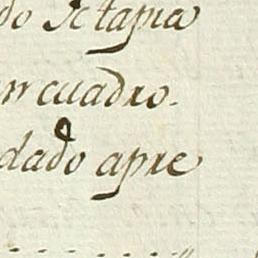 do Se tapia
en cuadro.
dado apre